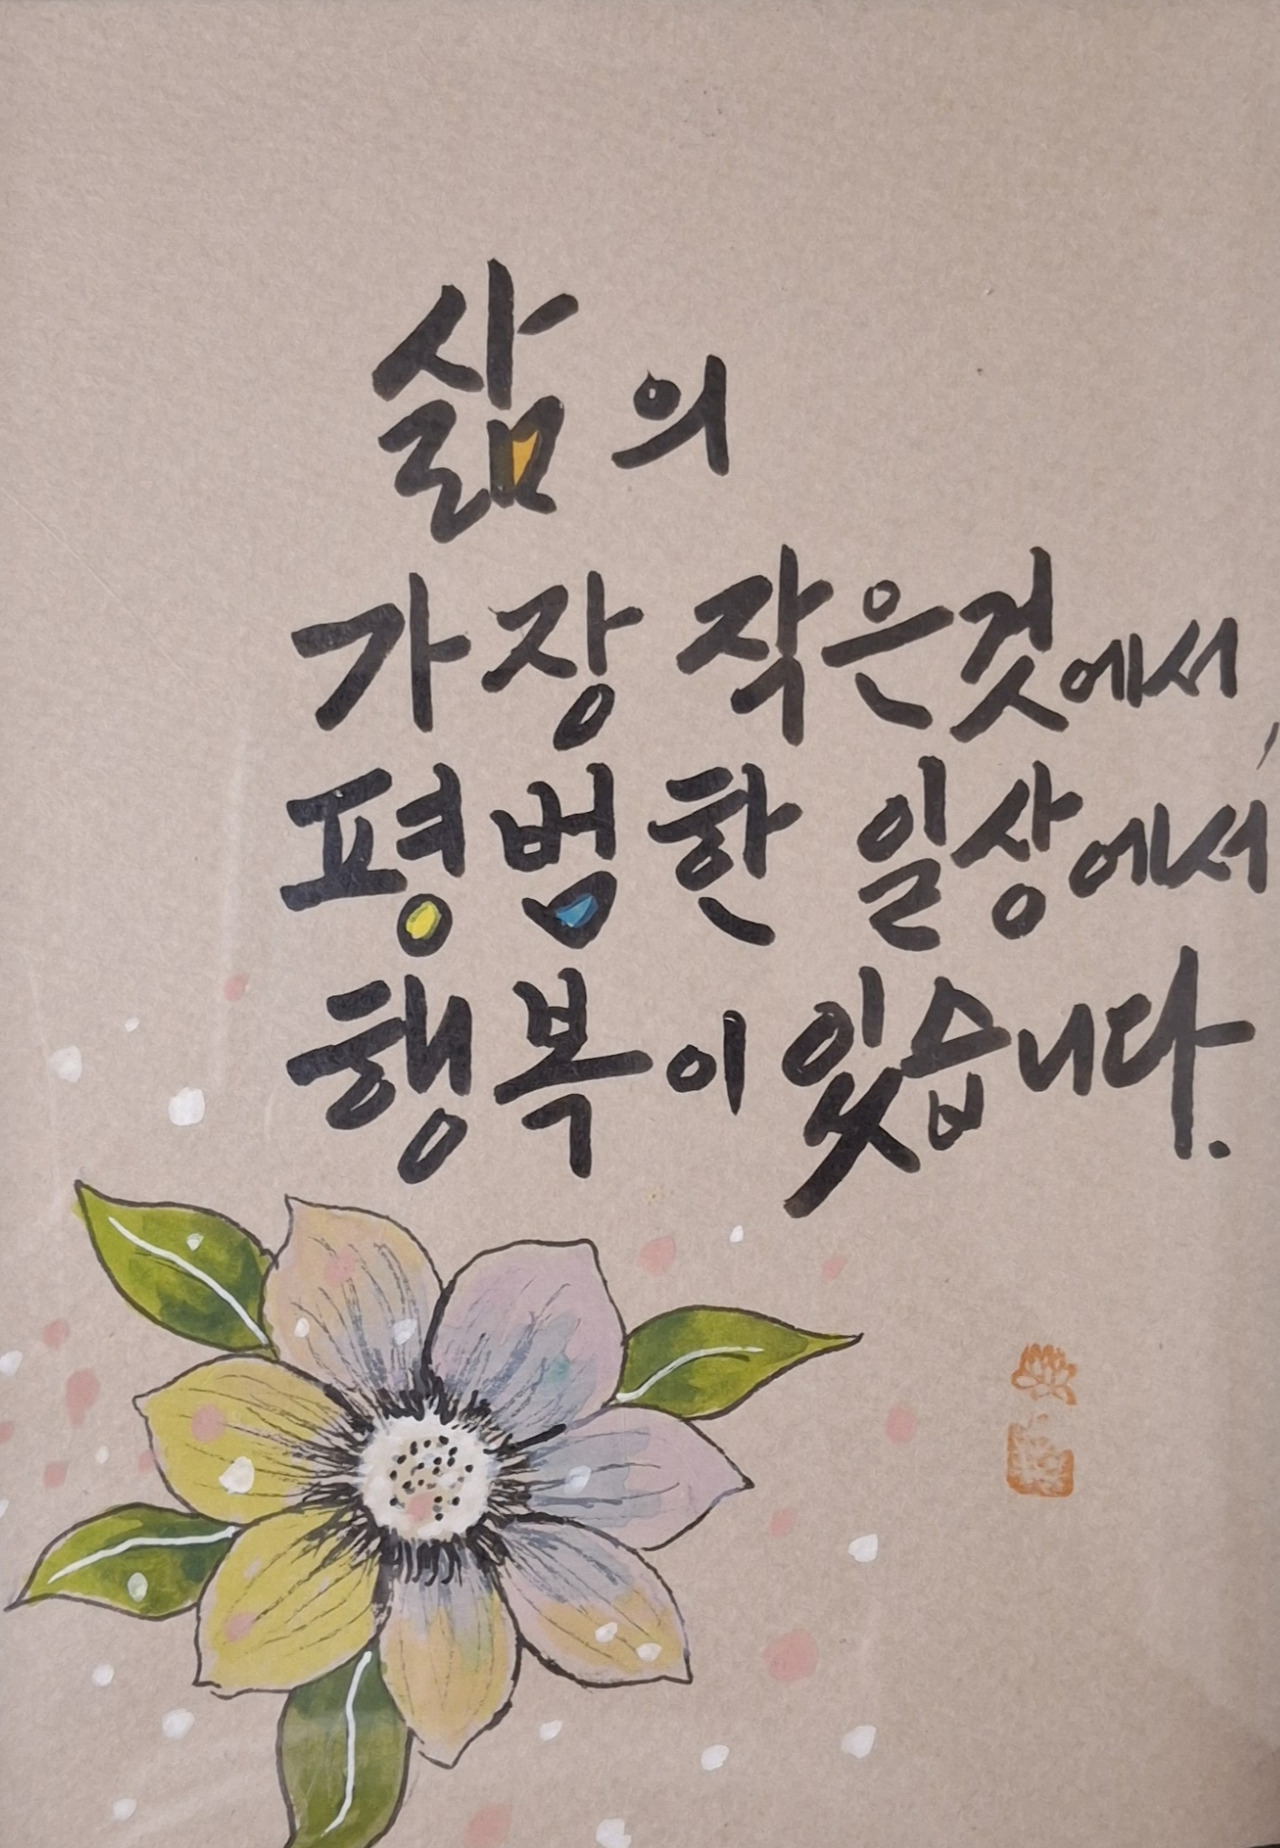 삶의
가장 작은것에서,
평범한 일상에서
행복이 있습니다.